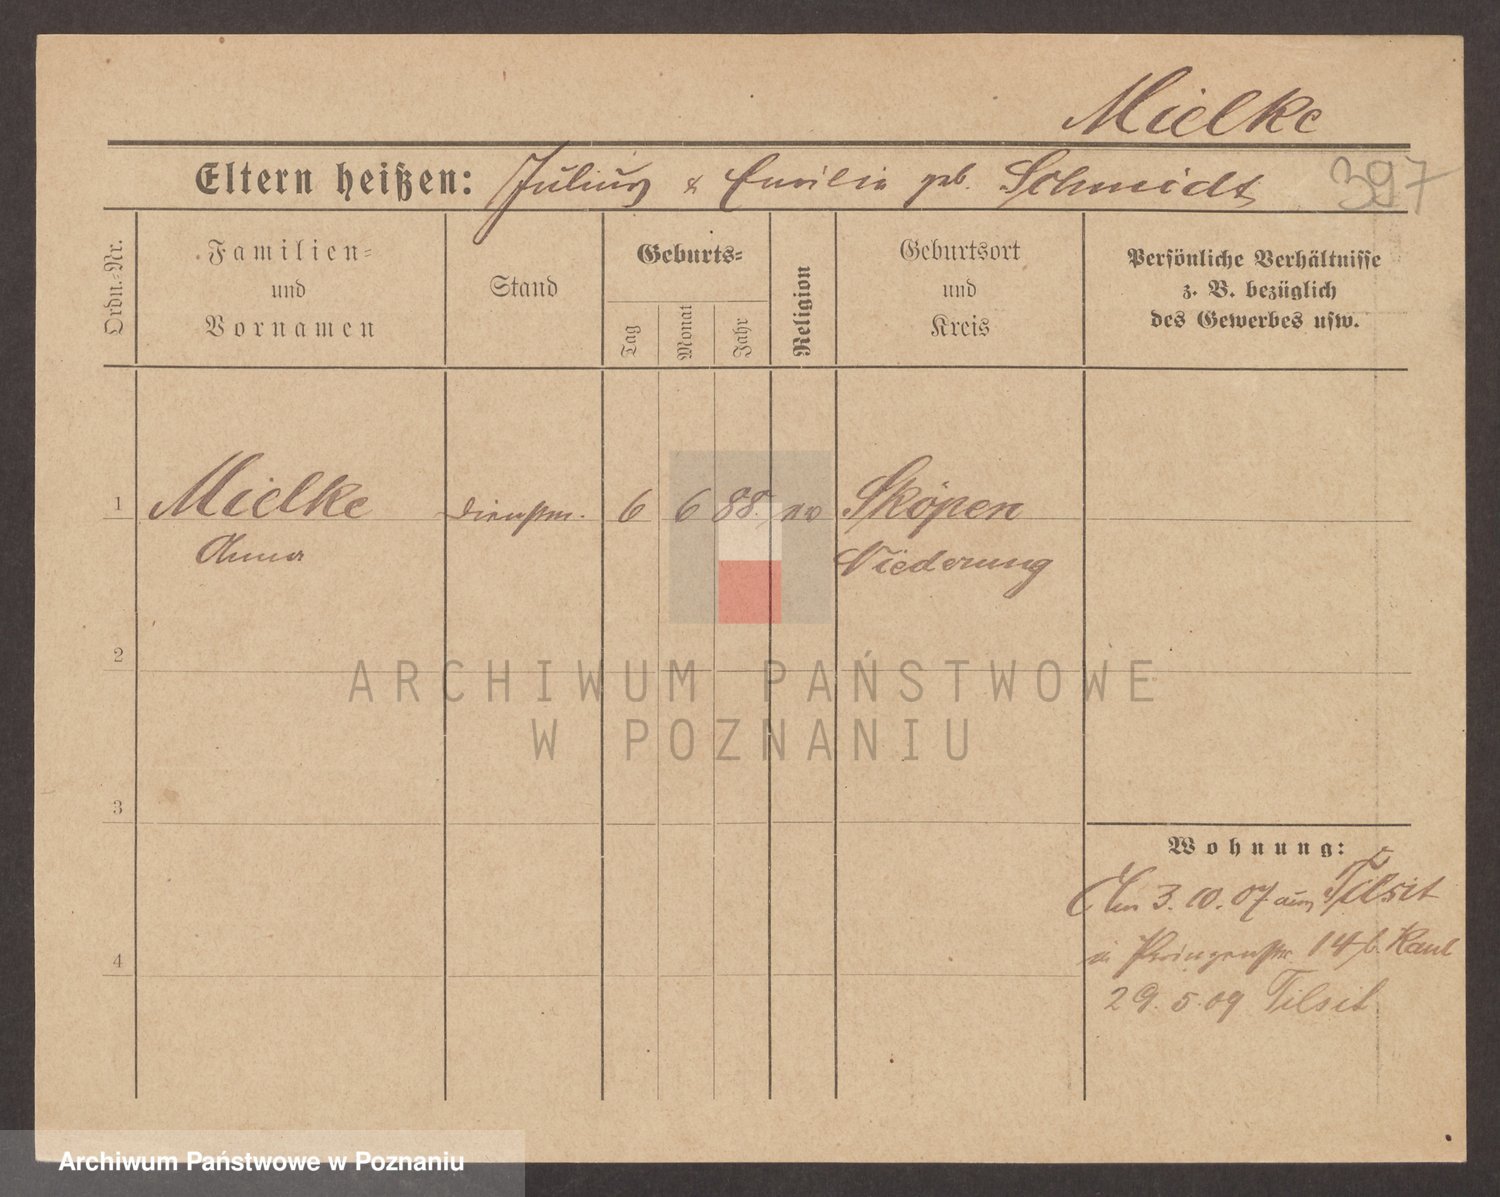 Mielke
Eltern heißen: Julius & Emilie geb. Schmidt 397
Ordn.-Nr.
Familien-
und
Vornamen
Stand
Geburts-
Tag
Monat
Jahr
Religion
Geburtsort
und
Kreis
Persönliche Verhältnisse
z. B. bezüglich
des Gewerbes usw.
1 Mielke Dienstm. 6 6 88. ev Sköpen
Anna Niederung
2
ARCHIWUM PAŃSTWOWE
W POZNANIU
3
Wohnung:
Am 3. 10. 07 aus Tilsit
in 14 b.
4
29. 5. 09 Tilsit
Archiwum Państwowe w Poznaniu